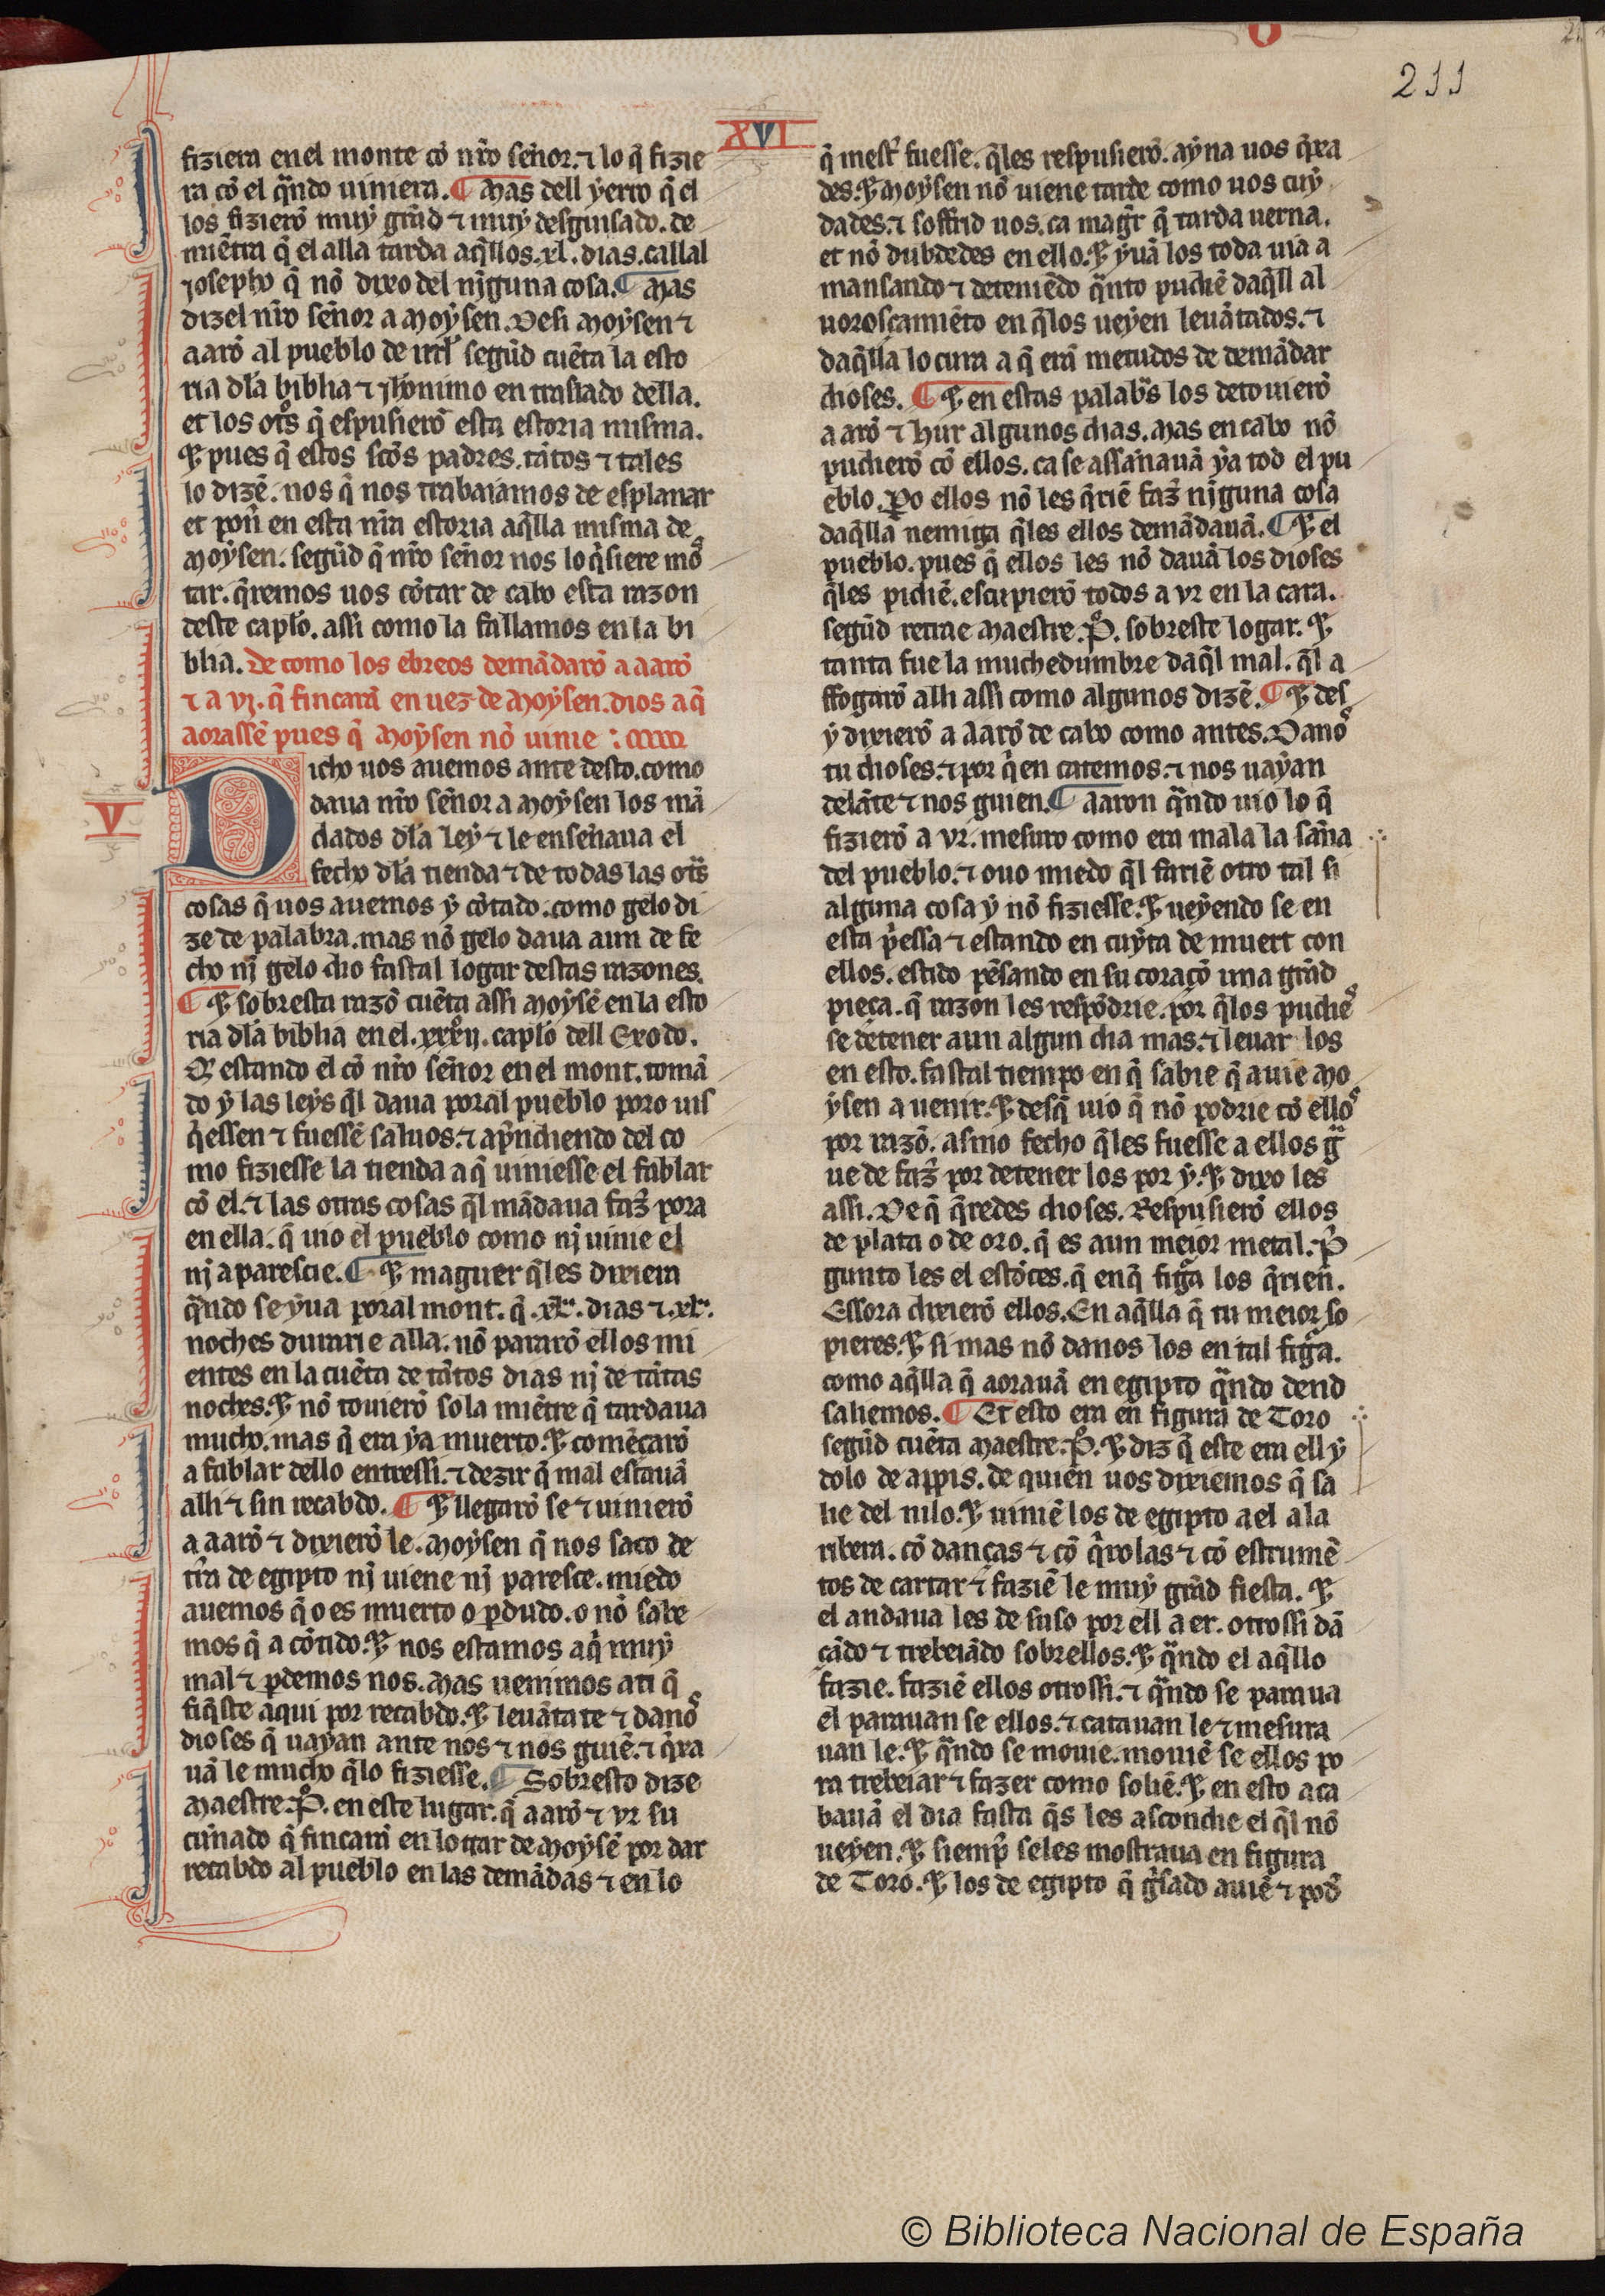 211
XVI
fiziera en el monte cõ nr̃o señor. ⁊ lo q̃ fizie
ra cõ el q̃ndo uiniera. ¶ Mas dell yerro q̃ el
los fizierõ muẏ grãd ⁊ muẏ desguisado. de
miẽtra q̃ el alla tarda aq̃llos .xl. dias. callal
josepho q̃ nõ dixo del nĩguna cosa. ¶ Mas
dizel nr̃o señor a Moẏsen. Desi Moẏsen ⁊
aarõ al pueblo de irl̃ segũd cuẽta la esto
ria dl̃a biblia ⁊ jhr̃onimo en traslado della.
et los otr̃s q̃ espusierõ esta estoria misma.
⁊ pues q̃ estos scõs padres. tãtos ⁊ tales
lo dizẽ. nos q̃ nos trabaiamos de esplanar
et pon̄ en esta nr̃a estoria aq̃lla misma de
Moẏsen. segũd q̃ nr̃o señor nos lo q̃siere mos
tar. q̃remos uos cõtar de cabo esta razon
deste capl̃o. assi como la fallamos en la bi
blia. De como los ebreos demãdarõ a aarõ
⁊ a vr. q̃ fincarã en uez de Moẏsen. dios a q̃
aorassẽ pues q̃ Moẏsen nõ uinie :
V
Dicho uos auemos ante desto. como
daua nr̃o señor a Moẏsen los mã
dados dl̃a leẏ ⁊ le enseñaua el
fecho dl̃a tienda ⁊ de todas las otr̃s
cosas q̃ uos auemos ẏ cõtado. como gelo di
ze de palabra. mas nõ gelo daua aun de fe
cho nĩ gelo dio fastal logar destas razones.
¶ ⁊ sobresta razõ cuẽta assi Moẏsẽ en la esto
ria dl̃a biblia en el .xxxij. capl̃o dell Exodo.
Et estando el cõ nr̃o señor en el mont. tomã
do ẏ las leẏs q̃l daua poral pueblo poro uis
q̃essen ⁊ fuessẽ saluos. ⁊ ap̃ndiendo del co
mo fiziesse la tienda a q̃ uiniesse el fablar
cõ el. ⁊ las otras cosas q̃l mãdaua faz̃ pora
en ella. q̃ uio el pueblo como nĩ uinie el
nĩ aparescie. ¶ ⁊ maguer q̃les dixiera
q̃ndo se ẏua poral mont. q̃ .xl. dias ⁊ .xl.
noches durarie alla. nõ pararõ ellos mi
entes en la cuẽta de tãtos dias nĩ de tãtas
noches. ⁊ nõ touierõ sola miẽtre q̃ tardaua
mucho. mas q̃ era ẏa muerto. ⁊ comẽçarõ
a fablar dello entressi. ⁊ dezir q̃ mal estauã
alli ⁊ sin recabdo. ¶ ⁊ llegarõ se ⁊ uinierõ
a aarõ ⁊ dixierõ le. Moẏsen q̃ nos saco de
tr̃ra de egipto nĩ uiene nĩ paresce. miedo
auemos q̃ o es muerto o p̱dudo. o nõ sabe
mos q̃ a cõtido. ⁊ nos estamos aq̃ muẏ
mal ⁊ p̱demos nos. Mas uenimos a ti q̃
fiq̃ste aqui por recabdo. ⁊ leuãta te ⁊ danos
dioses q̃ uaẏan ante nos ⁊ nos guiẽ. ⁊ q̃xa
uã le mucho q̃lo fiziesse. ¶ Sobresto dize
Maestre .P̊. en este lugar. q̃ aarõ ⁊ vr su
cuñado q̃ fincarã en logar de Moẏsẽ por dar
recabdo al pueblo en las demãdas ⁊ en lo
q̃ mest̃ fuesse. q̃les respusierõ. aẏna uos q̃xa
des. ⁊ Moẏsen nõ uiene tarde como uos cuẏ
dades. ⁊ soffrid uos. ca mag̃r q̃ tarda uerna.
et nõ dubdedes en ello. ⁊ ẏuã los toda uia a
mansando ⁊ deteniẽdo q̃nto pudiẽ daq̃ll al
uoroscamiẽto en q̃los ueẏen leuãtados. ⁊
daq̃lla locura a q̃ erã metudos de demãdar
dioses. ¶ ⁊ en estas palabr̃s los detouierõ
aarõ ⁊ hur algunos dias. Mas en cabo nõ
pudierõ cõ ellos. ca se assañauã ẏa tod el pu
eblo. p̱o ellos nõ les q̃riẽ faz̃ nĩguna cosa
daq̃lla nemiga q̃les ellos demãdauã. ¶ ⁊ el
pueblo. pues q̃ ellos les nõ dauã los dioses
q̃les pidiẽ. escupierõ todos a vr en la cara.
segũd retrae Maestre .P̊. sobreste logar. ⁊
tanta fue la muchedumbre daq̃l mal. q̃l a
ffogarõ alli assi como algunos dizẽ. ¶ ⁊ des
ẏ dixierõ a aarõ de cabo como antes. Danos
tu dioses. ⁊ por q̃en catemos. ⁊ nos uaẏan
delãte ⁊ nos guien. ¶ Aaron q̃ndo uio lo q̃
fizierõ a vr. mesuro como era mala la saña
del pueblo. ⁊ ouo miedo q̃l fariẽ otro tal si
alguna cosa ẏ nõ fiziesse. ⁊ ueẏendo se en
esta p̃essa ⁊ estando en cuẏta de muert con
ellos. estido pẽsando en su coraçõ una grãd
pieça. q̃ razon les respõdrie. por q̃los pudies
se detener aun algun dia mas. ⁊ leuar los
en esto. fastal tiempo en q̃ sabie q̃ auie Mo
ẏsen a uenir. ⁊ desq̃ uio q̃ nõ podrie cõ ellos
por razõ. asmo fecho q̃les fuesse a ellos g̃
ue de faz̃ por detener los por ẏ. ⁊ dixo les
assi. De q̃ q̃redes dioses. Respusierõ ellos
de plata o de oro. q̃ es aun meior metal. P̃
gunto les el estõces. q̃ en q̃ fig̃a los q̃rien̄.
Essora dixierõ ellos. En aq̃lla q̃ tu meior so
pieres. ⁊ si mas nõ danos los en tal fig̃a.
como aq̃lla q̃ aorauã en egipto q̃ndo dend
saliemos. ¶ Et esto era en figura de Toro
segũd cuẽta Maestre .P̊. ⁊ diz q̃ este era ell ẏ
dolo de appis. de quien uos dixiemos q̃ sa
lie del nilo. ⁊ uiniẽ los de egipto a el a la
ribera. cõ danças ⁊ cõ q̃rolas ⁊ cõ estrumẽ
tos de cartar ⁊ faziẽ le muẏ grãd fiesta. ⁊
el andaua les de suso por ell aer. otrossi dã
çãdo ⁊ trebeiãdo sobrellos. ⁊ q̃ndo el aq̃llo
fazie. faziẽ ellos otrossi. ⁊ q̃ndo se paraua
el parauan se ellos. ⁊ catauan le ⁊ mesura
uan le. ⁊ q̃ndo se mouie. mouiẽ se ellos po
ra trebeiar ⁊ fazer como soliẽ. ⁊ en esto aca
bauã el dia fasta q̃s les ascondie el q̃l nõ
ueẏen. ⁊ siemp̃ seles mostraua en figura
de Toro. ⁊ los de egipto q̃ g̃sado auiẽ ⁊ pod̃
© Biblioteca Nacional de España